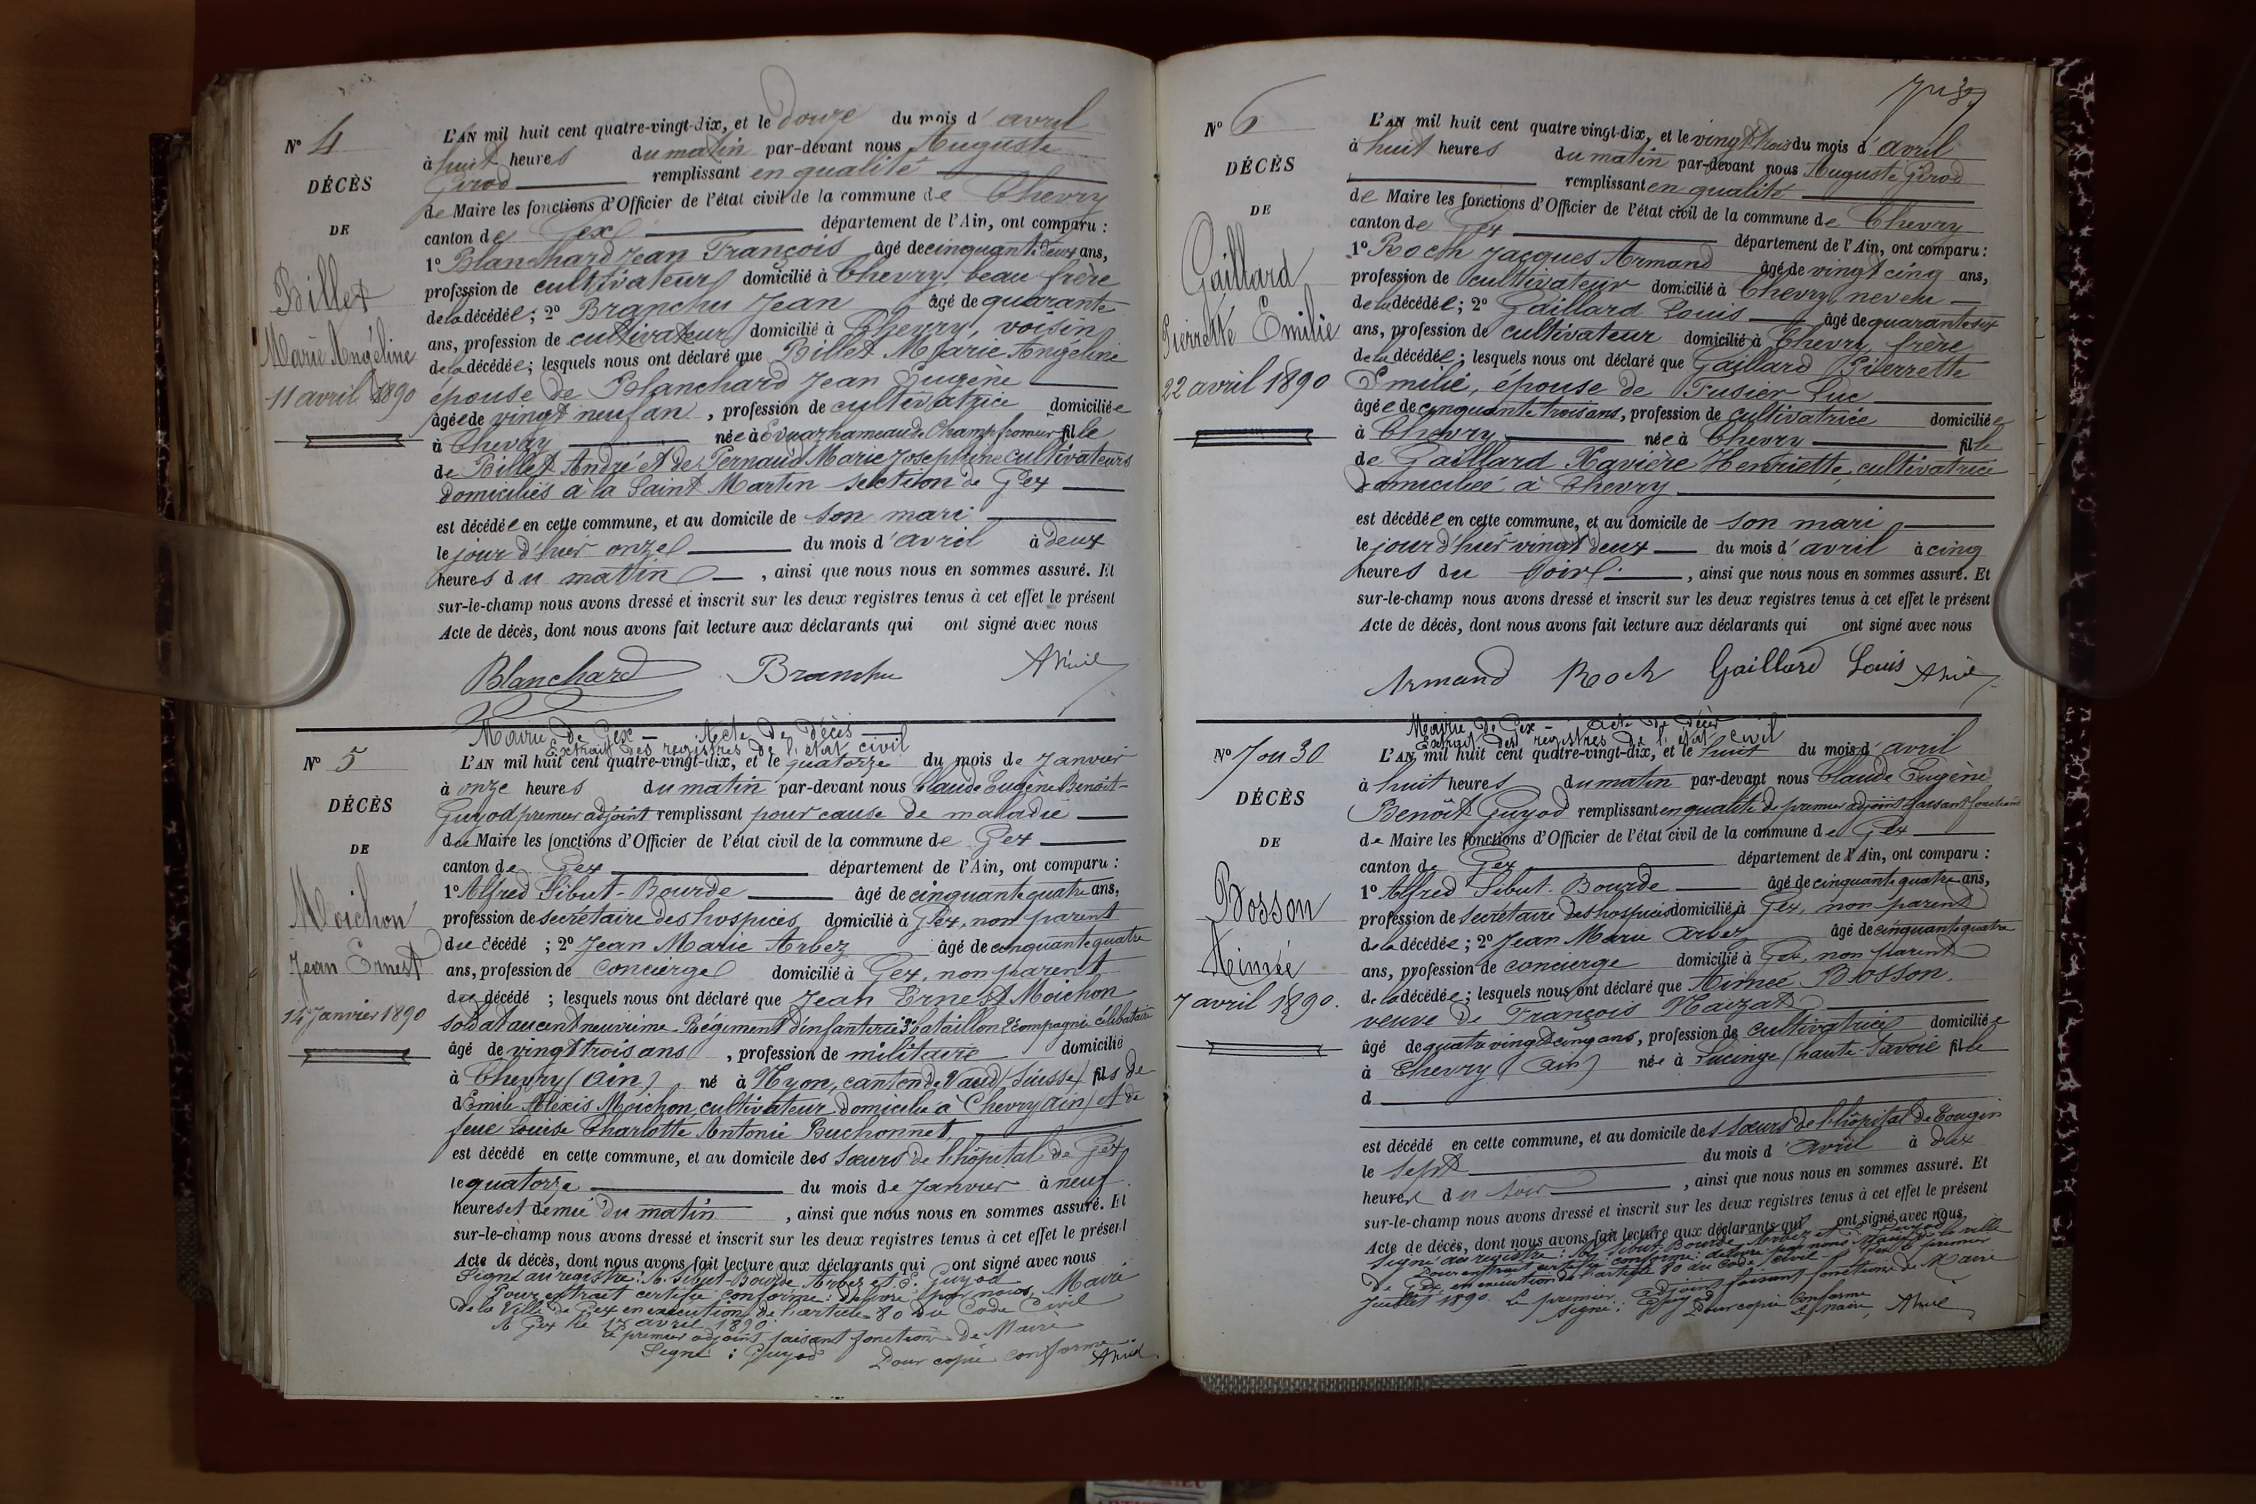 N° 4
DÉCÈS
DE
Billet
Marie Angéline
11 avril 1890
L'AN mil huit cent quatre-vingt-dix, et le douze du mois d'avril
à huit heures du matin par-devant nous Auguste
Girod remplissant en qualité
de Maire les fonctions d'Officier de l'état civil de la commune de Chevry
canton de Gex département de l'Ain, ont comparu :
1° Blanchard Jean François âgé de cinquante deux ans,
profession de cultivateur domicilié à Chevry, beau frère
de la décédée ; 2° Branchu Jean âgé de quarante
ans, profession de cultivateur domicilié à Chevry, voisin
de la décédée ; lesquels nous ont déclaré que Billet Marie Angéline
épouse de Blanchard Jean Eugène
âgée de vingt neuf an , profession de cultivatrice domiciliée
à Chevry née à Evuaz hameau de Champfromier fille
de Billet André et de Pernaud Marie Josephine cultivateurs
domiciliés à la Saint Martin section de Gex
est décédée en cette commune, et au domicile de son mari
le jour d'hier onze du mois d'avril à deux
heures du matin , ainsi que nous nous en sommes assuré. Et
sur-le-champ nous avons dressé et inscrit sur les deux registres tenus à cet effet le présent
Acte de décès, dont nous avons fait lecture aux déclarants qui ont signé avec nous
Blanchard Branchu
N° 5
DÉCÈS
DE
Moichon
Jean Ernest
14 Janvier 1890
Mairie de Gex – Acte de Décès
Extrait des registres de l'état civil
L'AN mil huit cent quatre-vingt-dix, et le quatorze du mois de Janvier
à onze heures du matin par-devant nous Claude Eugène Benoit-
Guyod premier adjoint remplissant pour cause de maladie
du Maire les fonctions d'Officier de l'état civil de la commune de Gex
canton de Gex département de l'Ain, ont comparu :
1° Alfred Sibut-Bourde âgé de cinquante quatre ans,
profession de secrétaire des hospices domicilié à Gex, non parent
du décédé ; 2° Jean Marie Arbez âgé de cinquante quatre
ans, profession de concierge domicilié à Gex, non parent
du décédé ; lesquels nous ont déclaré que Jean Ernest Moichon
soldat au cent neuvième Régiment d'infanterie 3e bataillon 2e compagnie célibataire
âgé de vingt trois ans , profession de militaire domicilié
à Chevry (Ain) né à Nyon, canton de Vaud (Suisse) fils de
d'Emile Alexis Moichon, cultivateur domicilié à Chevry (Ain) et de
feue Louise Charlotte Antonie Buchonnet,
est décédé en cette commune, et au domicile des sœurs de l'hôpital de Gex
le quatorze du mois de Janvier à neuf
heures et demie du matin , ainsi que nous nous en sommes assuré. Et
sur-le-champ nous avons dressé et inscrit sur les deux registres tenus à cet effet le présent
Acte de décès, dont nous avons fait lecture aux déclarants qui ont signé avec nous
Signé au registre : A. Sibut-Bourde Arbez et E. Guyod
Pour extrait certifié conforme : délivré par nous, Maire
de la Ville de Gex en exécution de l'article 80 du Code Civil
A Gex le avril 1890
Le premier adjoint faisant fonction de Maire
Signé : Guyod Pour copie conforme
N° 6
DÉCÈS
DE
Gaillard
Pierrette Emilie
22 avril 1890
L'AN mil huit cent quatre vingt-dix, et le vingt trois du mois d'avril
à huit heures du matin par-devant nous Auguste Girod
remplissant en qualité
de Maire les fonctions d'Officier de l'état civil de la commune de Chevry
canton de Gex département de l'Ain, ont comparu :
1° Roch Jacques Armand âgé de vingt cinq ans,
profession de cultivateur domicilié à Chevry, neveu
de la décédée ; 2° Gaillard Louis âgé de quarante six
ans, profession de cultivateur domicilié à Chevry, frère
de la décédée ; lesquels nous ont déclaré que Gaillard Pierrette
Emilie, épouse de Tusier Luc
âgée de cinquante trois ans, profession de cultivatrice domiciliée
à Chevry née à Chevry fille
de Gaillard Xavière Henriette, cultivatrice
domiciliée à Chevry
est décédée en cette commune, et au domicile de son mari
le jour d'hier vingt deux du mois d'avril à cinq
heures du soir , ainsi que nous nous en sommes assuré. Et
sur-le-champ nous avons dressé et inscrit sur les deux registres tenus à cet effet le présent
Acte de décès, dont nous avons fait lecture aux déclarants qui ont signé avec nous
Armand Roch Gaillard Louis
N° 7 ou 30
DÉCÈS
DE
Bosson
Aimée
7 avril 1890.
Mairie de Gex – Acte de Décès
Extrait des registres de l'état civil
L'AN mil huit cent quatre-vingt-dix, et le huit du mois d'avril
à huit heures du matin par-devant nous Claude Eugène
Benoît Guyod remplissant en qualité de premier adjoint faisant fonctions
de Maire les fonctions d'Officier de l'état civil de la commune de Gex
canton de Gex département de l'Ain, ont comparu :
1° Alfred Sibut-Bourde âgé de cinquante quatre ans,
profession de secrétaire des hospices domicilié à Gex, non parent
de la décédée ; 2° Jean Marie Arbez âgé de cinquante quatre
ans, profession de concierge domicilié à Gex, non parent
de la décédée ; lesquels nous ont déclaré que Aimée Bosson,
veuve de François
âgé de quatre vingt cinq ans, profession de cultivatrice domiciliée
à Chevry (Ain) née à Lucinge (haute-Savoie fille
d
est décédé en cette commune, et au domicile des sœurs de l'hôpital de Tougin
le sept du mois d'avril à dix
heures du soir , ainsi que nous nous en sommes assuré. Et
sur-le-champ nous avons dressé et inscrit sur les deux registres tenus à cet effet le présent
Acte de décès, dont nous avons fait lecture aux déclarants qui ont signé avec nous
Signé au registre : Sibut-Bourde, Arbez et Guyod
Pour extrait certifié conforme : délivré par nous Maire de la ville
de Gex en exécution de l'article 80 du Code civil – Gex le premier
Juillet 1890. Le premier Adjoint faisant fonctions de Maire
Signé : Guyod Pour copie conforme
Le Maire,